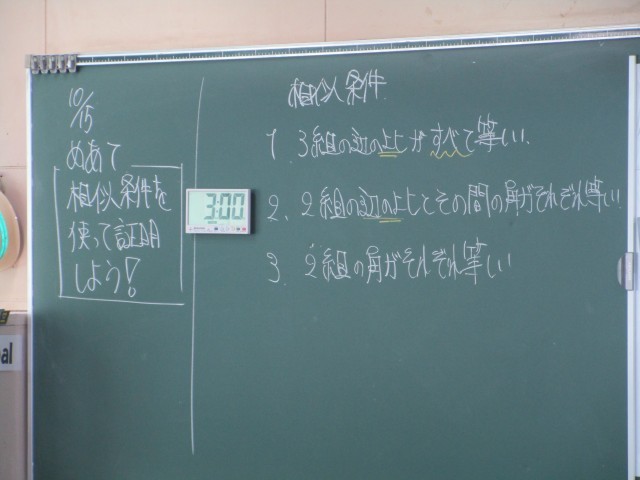 10/15
めあて
相似条件を
使って証明
しよう!
3:00
相似条件
1. 3組の辺の比がすべて等しい.
2. 2組の辺の比とその間の角がそれぞれ等しい
3. 2組の角がそれぞれ等しい
al